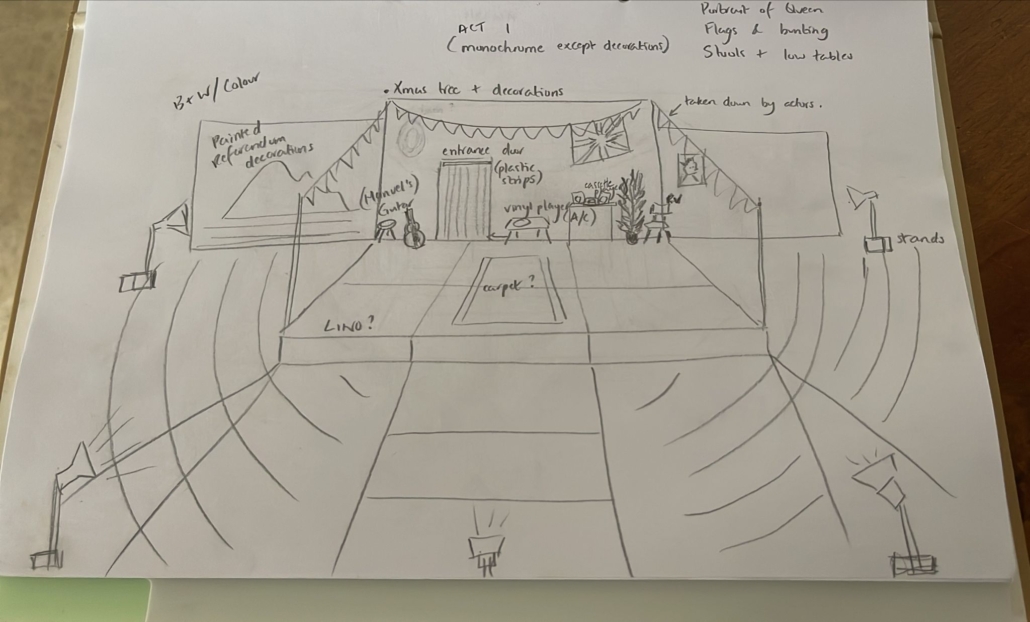 ACT 1
(monochrome except decorations)
Portrait of Queen
Flags & bunting
Stools + low tables
B+W/Colour
• Xmas tree + decorations
taken down by actors.
Painted
Referendum
decorations
entrance door
(plastic
strips)
(Manuel's)
Guitar
vinyl player
cassette
(A/C)
stands
carpet?
LINO?